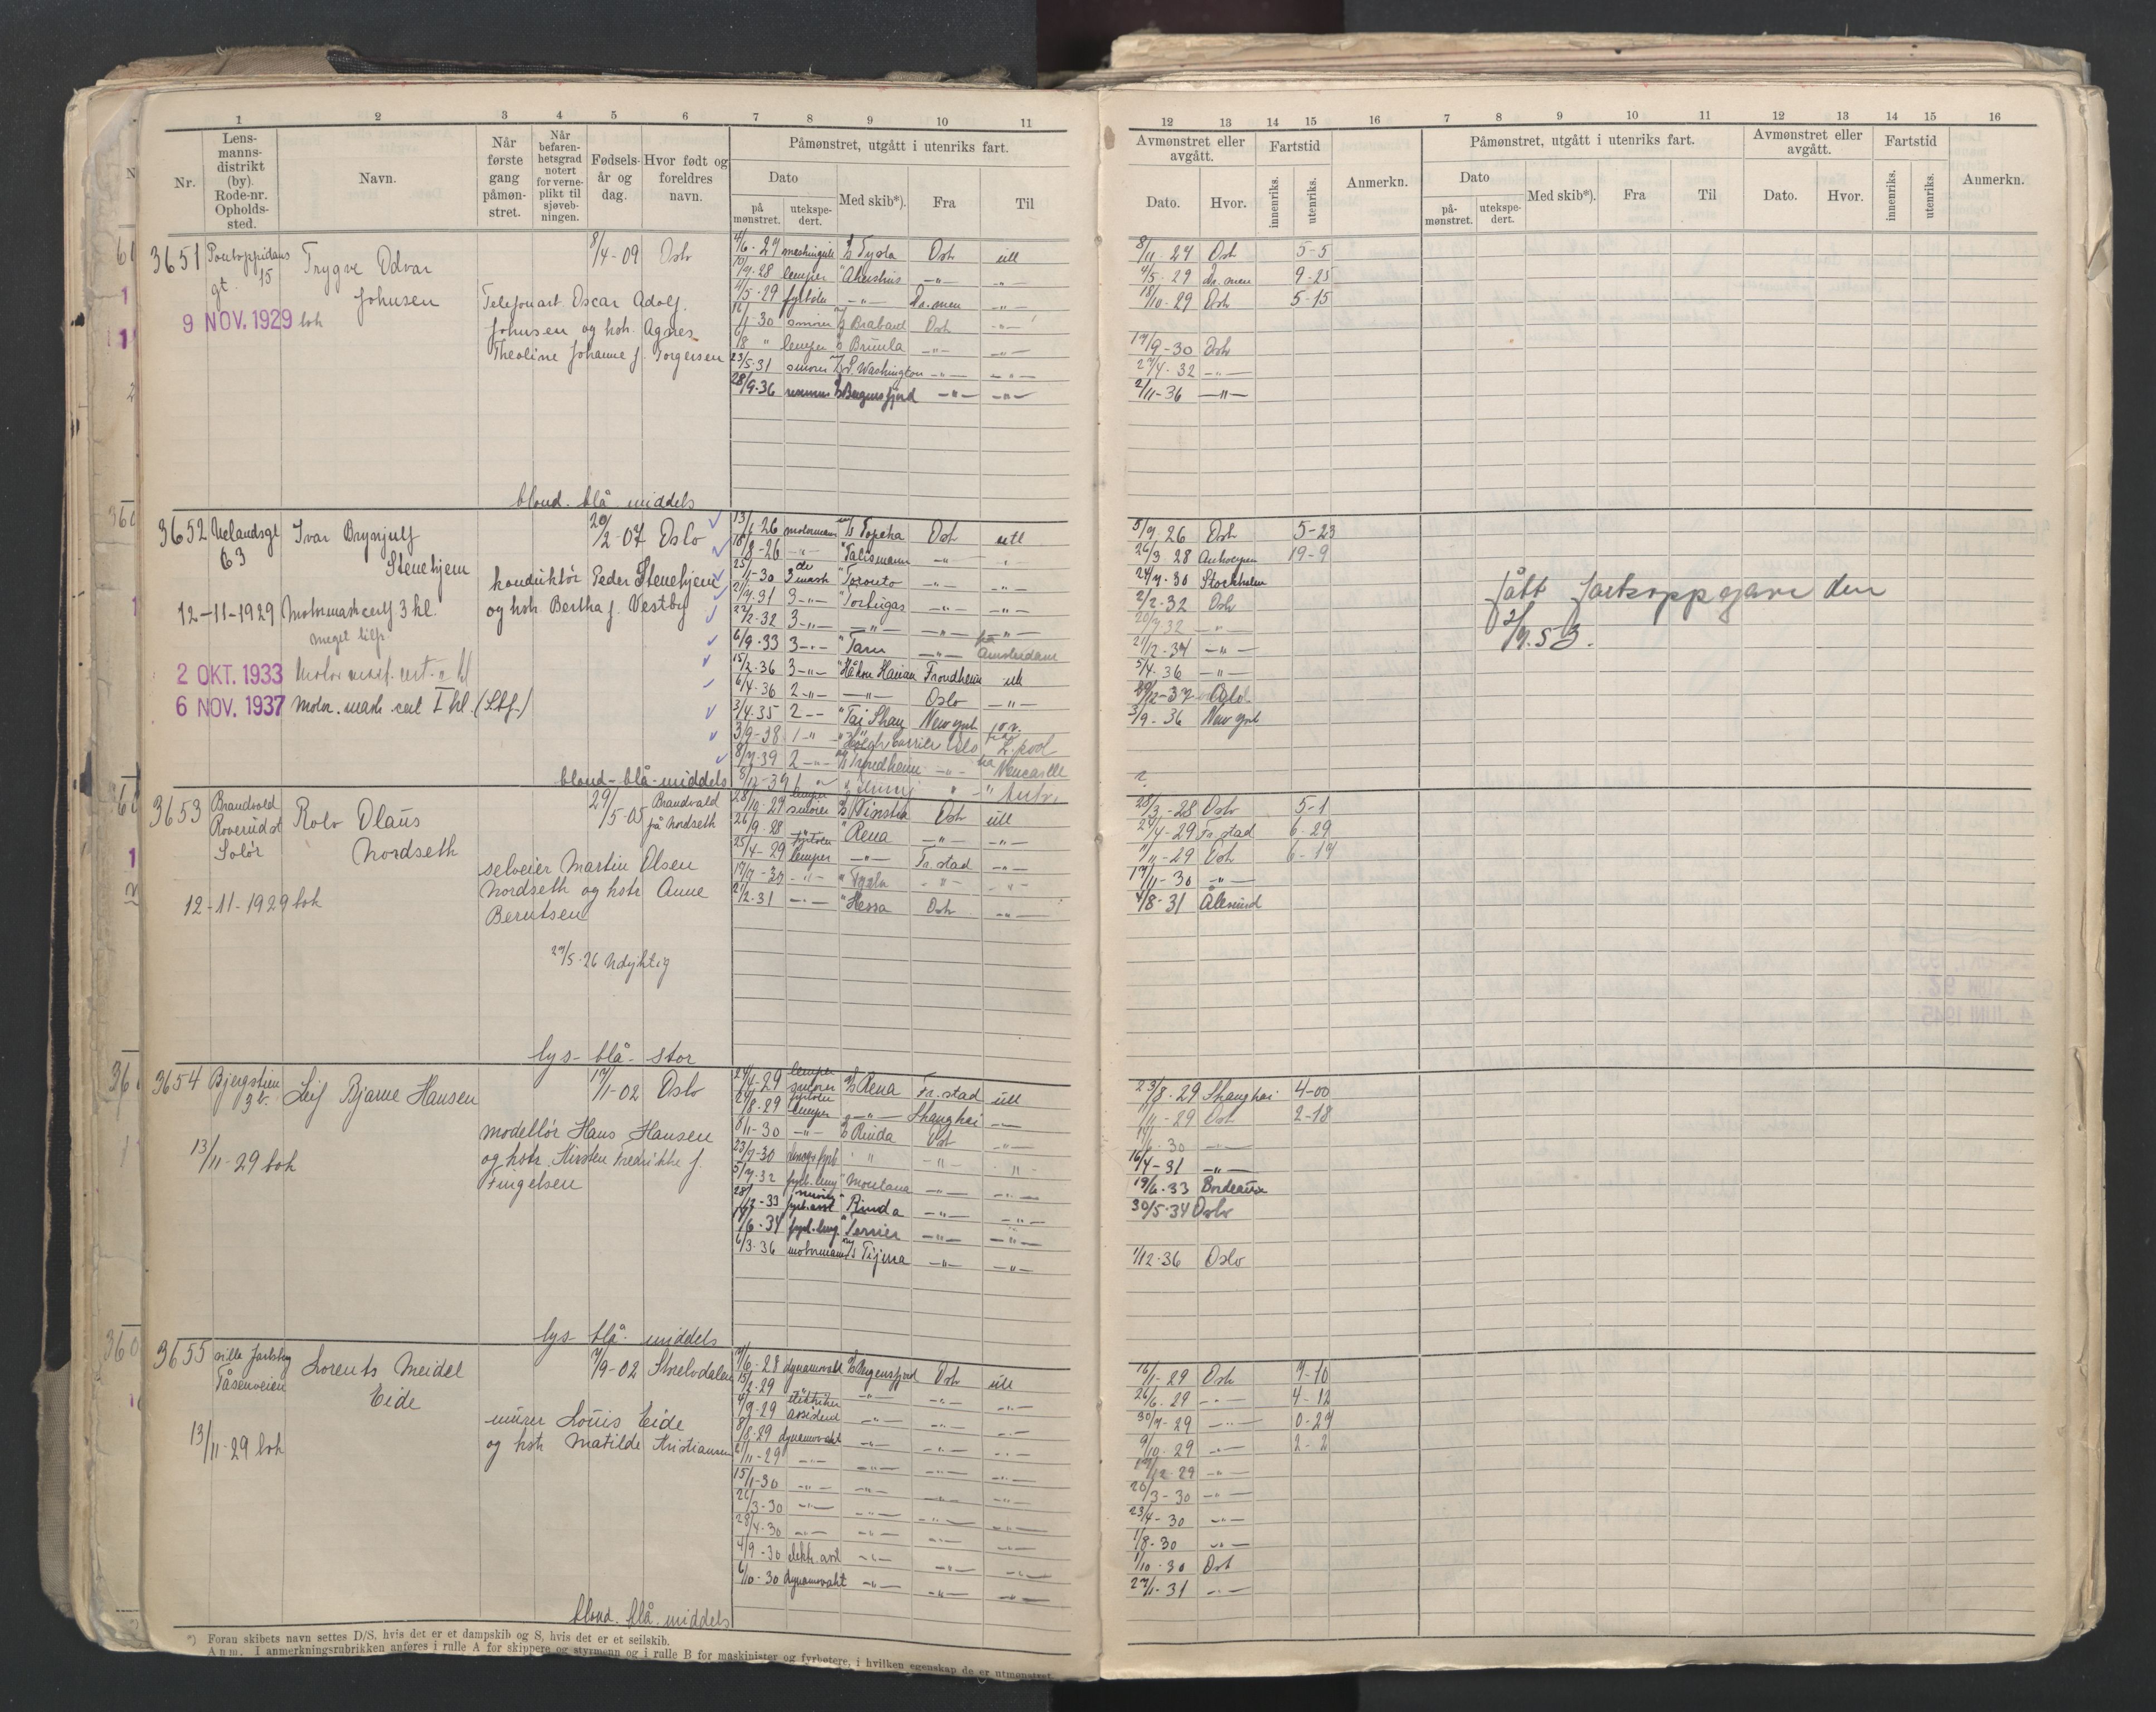 1 2 3 4 5 6 7 8 9 10 11
Nr.
Lens-
manns-
distrikt
(by).
Rode-nr.
Opholds-
sted.
Navn.
Når
første
gang
påmøn-
stret.
Når
befaren-
hetsgrad
notert
for verne-
plikt til
sjøveb-
ningen.
Fødsels-
år og
dag.
Hvor født og
foreldres
navn.
Påmønstret, utgått i utenriks fart.
Dato
på
mønstret.
utekspe-
dert.
Med skib*).
Fra
Til
12 13 14 15 16 7 8 9 10 11 12 13 14 15 16
Avmønstret eller
avgått.
Dato.
Hvor.
Fartstid
innenriks.
utenriks.
Anmerkn.
Påmønstret, utgått i utenriks fart.
Dato
på-
mønstret.
utekspe-
dert.
Med skib*).
Fra
Til
Avmønstret eller
avgått.
Dato.
Hvor.
Fartstid
innenriks.
utenriks.
Anmerkn.
3651 Pontoppidans
gt. 15
Trygve Odvar
Johnsen
8/4-09 Oslo
9 NOV. 1929 boh
Telefonarb. Oscar Adolf
Johnsen og hstr. Agnes
Theoline Johanne f. Torgersen
4/6-27 D/S Tysla Oslo utl 8/11-27 Oslo 5-5
/9-28 lemper " Akershus -"- -"- 4/5-29 Dr.men 9-25
/5-29 fyrbøter -"- Dr.men -"- 18/10-29 Oslo 5-15
/1-30 smører M/S Brabant Oslo -"-
6/8 " lemper D/S Brumla -"- -"- 19/9-30 Oslo
23/5-31 smører Washington -"- -"- 27/4-32 -"-
28/9-36 D/S Bergensfjord -"- -"- 2/11-36 -"-
blond. blå middels
3652 Uelandsgt
63
Ivar Brynjulf
Stenehjem
20/2-07 Oslo
konduktør Peder Stenehjem
og hstr. Bertha f. Vestby
12-11-1929 Motormaskcertf 3 kl.
meget tilfr
2 OKT. 1933
6 NOV. 1937 Motor. mask. cert I kl.
13/1-26 motormann M/S Topeka Oslo utl 5/7-26 Oslo 5-23
18/8-26 -"- " Talisman -"- -"- 26/3-28 Antwerpen 19-9
25/1-30 3 de mask " Toronto -"- -"- 24/7-30 Stockholm
2/7-31 3-"- " Tortugas -"- -"- 2/2-32 Oslo
22/2-32 3-"- -"- -"- -"- 20/7-32 -"-
6/9-33 3-"- " Tarn -"- fra Amsterdam 21/12-34 -"-
15/2-36 3-"- " Håkon Hauan Trondheim utl 5/4-36 -"-
6/4-36 2-"- -"- Oslo -"-
3/4-35 2-"- " Tai Shan New York 3/9-36 New York
3/9-38 1 " " Høegh Carrier Oslo fra L.pool
8/7-39 2-"- M/S Trondheim -"- fra Newcastle
8/12-39 1
fått fartsoppgave den
2/9.53.
blond-blå-middels
3653 Brandvold
Roverud st
Solør
Rolv Olaus
Nordseth
29/5-05 Brandvold
på Nordseth
selveier Martin Olsen
Nordseth og hstr Anne
Berntsen
12-11-1929 boh
27/5-26 Udyktig
28/10-27 lemper smører D/S Oslo utl 28/3-28 Oslo 5-1
26/9-28 fyrbøter " Rena -"- -"- 24/4-29 Fr.stad 6-29
25/4-29 lemper -"- Fr.stad -"- 11/11-29 Oslo 6-17
17/7-30 -"- " Tysla -"- -"- 17/11-30 -"-
21/2-31 -"- " Hessa Oslo -"- 4/8-31 Ålesund
lys- blå- stor
3654 Bjergstien
3b.
Leif Bjarne Hansen
17/1-02 Oslo
modellør Hans Hansen
og hstr. Kirsten Fredrikke f.
Fingelsen
13/11-29 boh
24/4-29 lemper smører D/S Rena Fr.stad utl 23/8-29 Shanghai 4-00
24/8-29 fyrbøter lemper -"- Shanghai -"- 11/11-29 Oslo 2-18
8/1-30 -"- D/S Rinda Oslo -"- /6-30 -"-
23/7-30 " " -"- -"- 16/4-31 -"-
5/7-32 " Montana -"- -"- 19/6-33 Bordeaux
28/12-33 " Rinda -"- -"- 30/5-34 Oslo
/6-34 " Terrier -"- -"-
6/3-36 motormann M/S Tijuca -"- -"- 1/12-36 Oslo
lys- blå- middels
3655 Villa Jarlsberg
Tåsenveien
Lorents Meidel
Eide
7/9-02 Strelvdalen
murer Louis Eide
og hstr Matilde Kristiansen
13/11-29 boh
7/6-28 dynamovakt D/S Bergensfjord Oslo utl 16/1-29 Oslo 7-10
15/2-29 -"- -"- -"- -"- 26/6-29 -"- 4-12
4/7-29 elektriker assistent -"- -"- -"- 30/7-29 -"- 0-27
8/8-29 dynamovakt -"- -"- -"- 9/10-29 -"- 2-2
6/11-29 -"- -"- -"- -"- 19/12-29 -"-
15/1-30 -"- -"- -"- -"- 20/3-30 -"-
26/3-30 -"- -"- -"- -"- 23/4-30 -"-
28/4-30 -"- -"- -"- -"- 1/8-30 -"-
4/9-30 elektr. asst -"- -"- -"- 1/10-30 Oslo
6/10-30 dynamovakt -"- -"- -"- 27/1-31 -"-
blond. blå. middels
*) Foran skibets navn settes D/S, hvis det er et dampskib og S, hvis det er et seilskib.
Anm. I anmerkningsrubrikken anføres i rulle A for skippere og styrmenn og i rulle B for maskinister og fyrbøtere, i hvilken egenskap de er utmønstret.